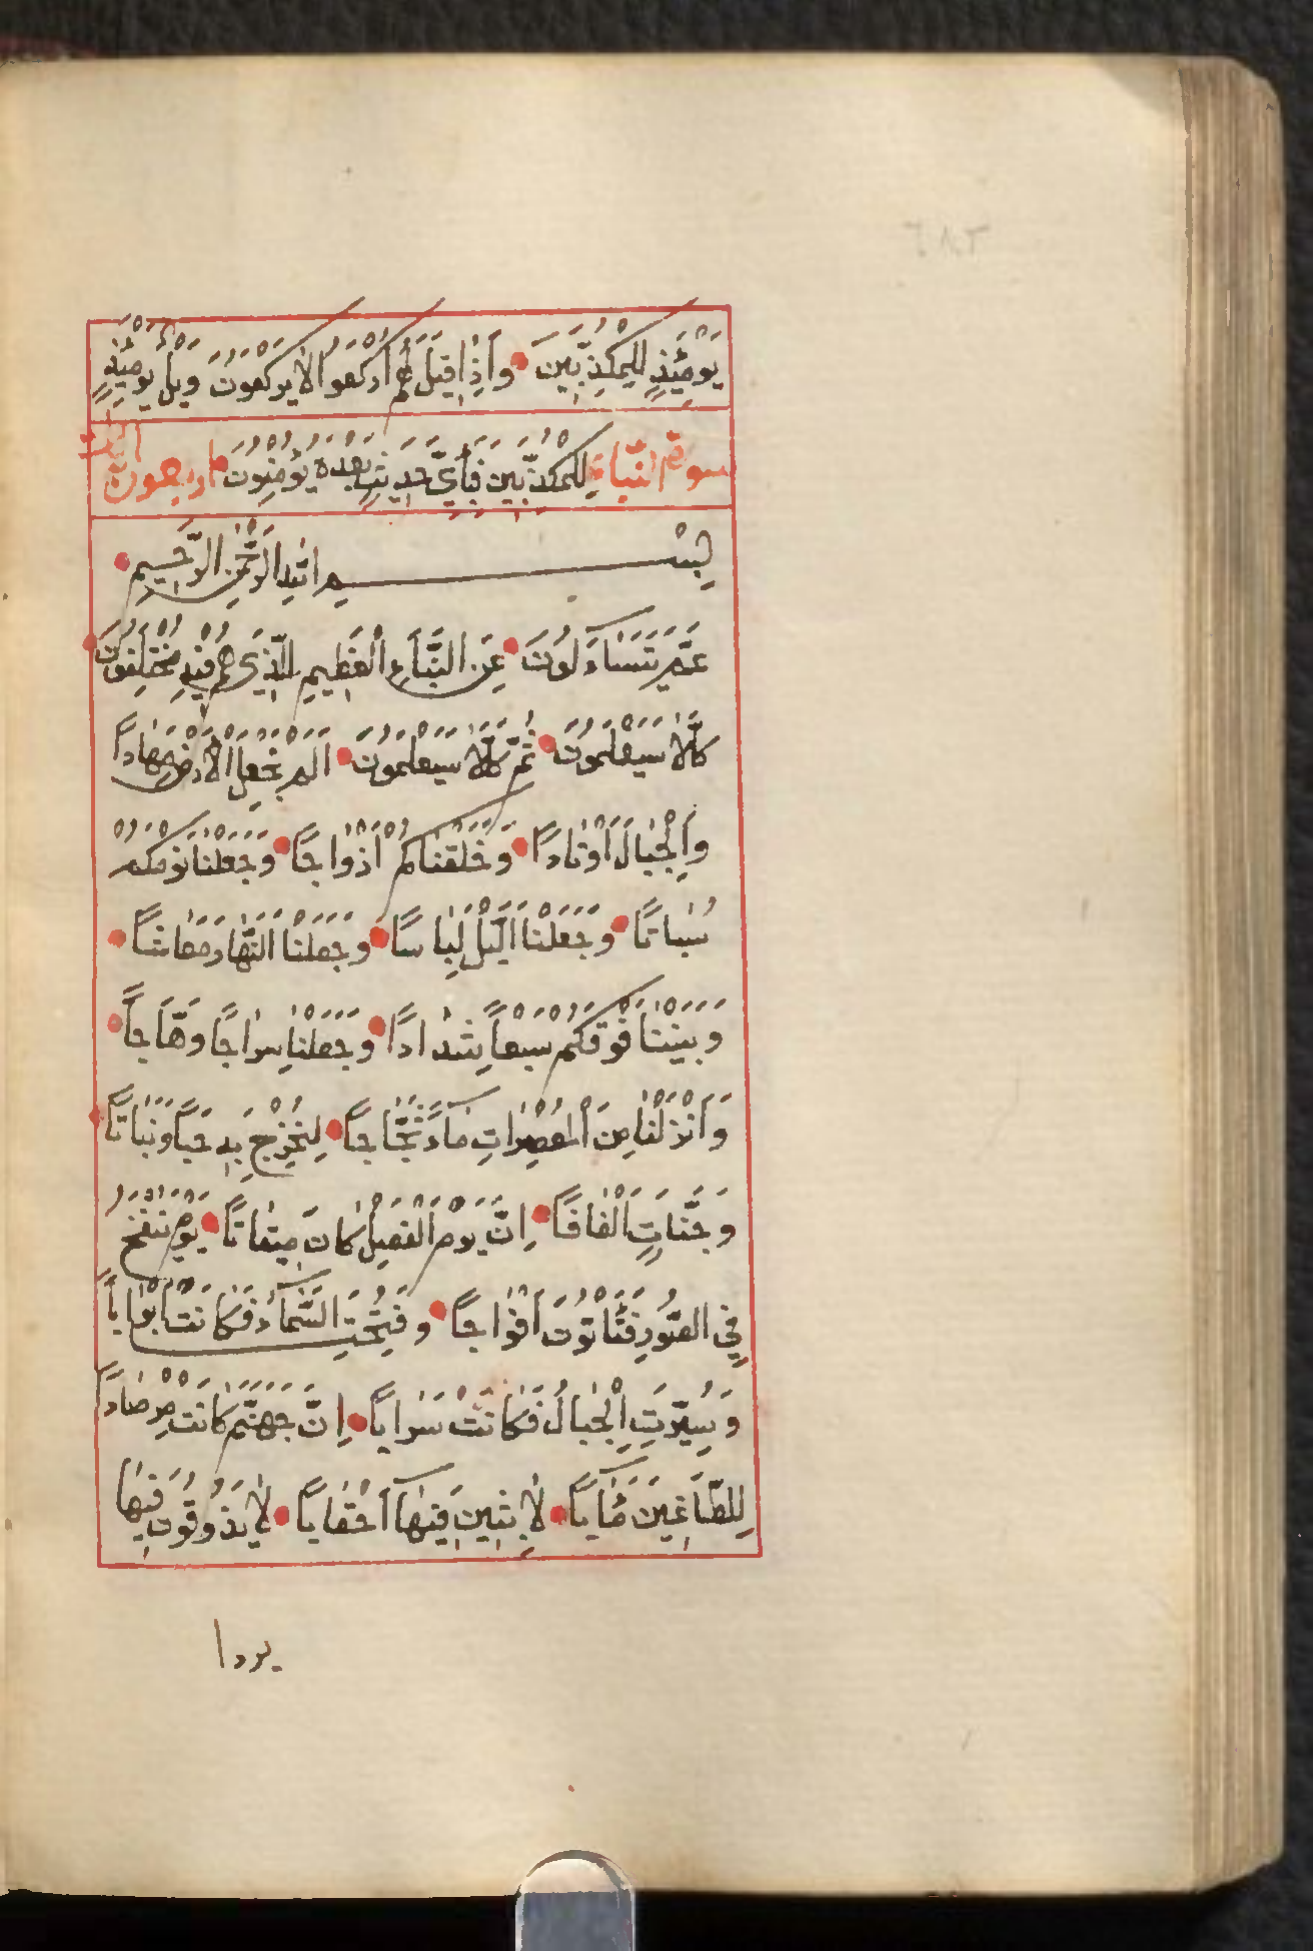 يَوْمَئِذٍ لِلْمُكَذِّبِينَ وَاِذَا قِيلَ لَهُمُ ارْكَعُوا لَا يَرْكَعُونَ وَيْلٌ يَوْمَئِذٍ
سورة النباء لِلْمُكَذِّبِينَ فَبِأَيِّ حَدِيثٍ بَعْدَهُ يُؤْمِنُونَ اربعون آيات
بِسْمِ اللهِ الرَّحْمٰنِ الرَّحِيمِ
عَمَّ يَتَسَاءَلُونَ عَنِ النَّبَاءِ الْعَظِيمِ الَّذِي هُمْ فِيهِ مُخْتَلِفُونَ
كَلَّا سَيَعْلَمُونَ ثُمَّ كَلَّا سَيَعْلَمُونَ اَلَمْ نَجْعَلِ الْاَرْضَ مِهَادًا
وَالْجِبَالَ اَوْتَادًا وَخَلَقْنَاكُمْ اَزْوَاجًا وَجَعَلْنَا نَوْمَكُمْ
سُبَاتًا وَجَعَلْنَا الَّيْلَ لِبَاسًا وَجَعَلْنَا النَّهَارَ مَعَاشًا
وَبَنَيْنَا فَوْقَكُمْ سَبْعًا شِدَادًا وَجَعَلْنَا سِرَاجًا وَهَّاجًا
وَاَنْزَلْنَا مِنَ الْمُعْصِرَاتِ مَاءً ثَجَّاجًا لِنُخْرِجَ بِهِ حَبًّا وَنَبَاتًا
وَجَنَّاتٍ اَلْفَافًا اِنَّ يَوْمَ الْفَصْلِ كَانَ مِيقَاتًا يَوْمَ يُنْفَخُ
فِي الصُّورِ فَتَأْتُونَ اَفْوَاجًا وَفُتِحَتِ السَّمَاءُ فَكَانَتْ اَبْوَابًا
وَسُيِّرَتِ الْجِبَالُ فَكَانَتْ سَرَابًا اِنَّ جَهَنَّمَ كَانَتْ مِرْصَادًا
لِلطَّاغِينَ مَئَابًا لَابِثِينَ فِيهَا اَحْقَابًا لَا يَذُوقُونَ فِيهَا
بردا
٢٨٣